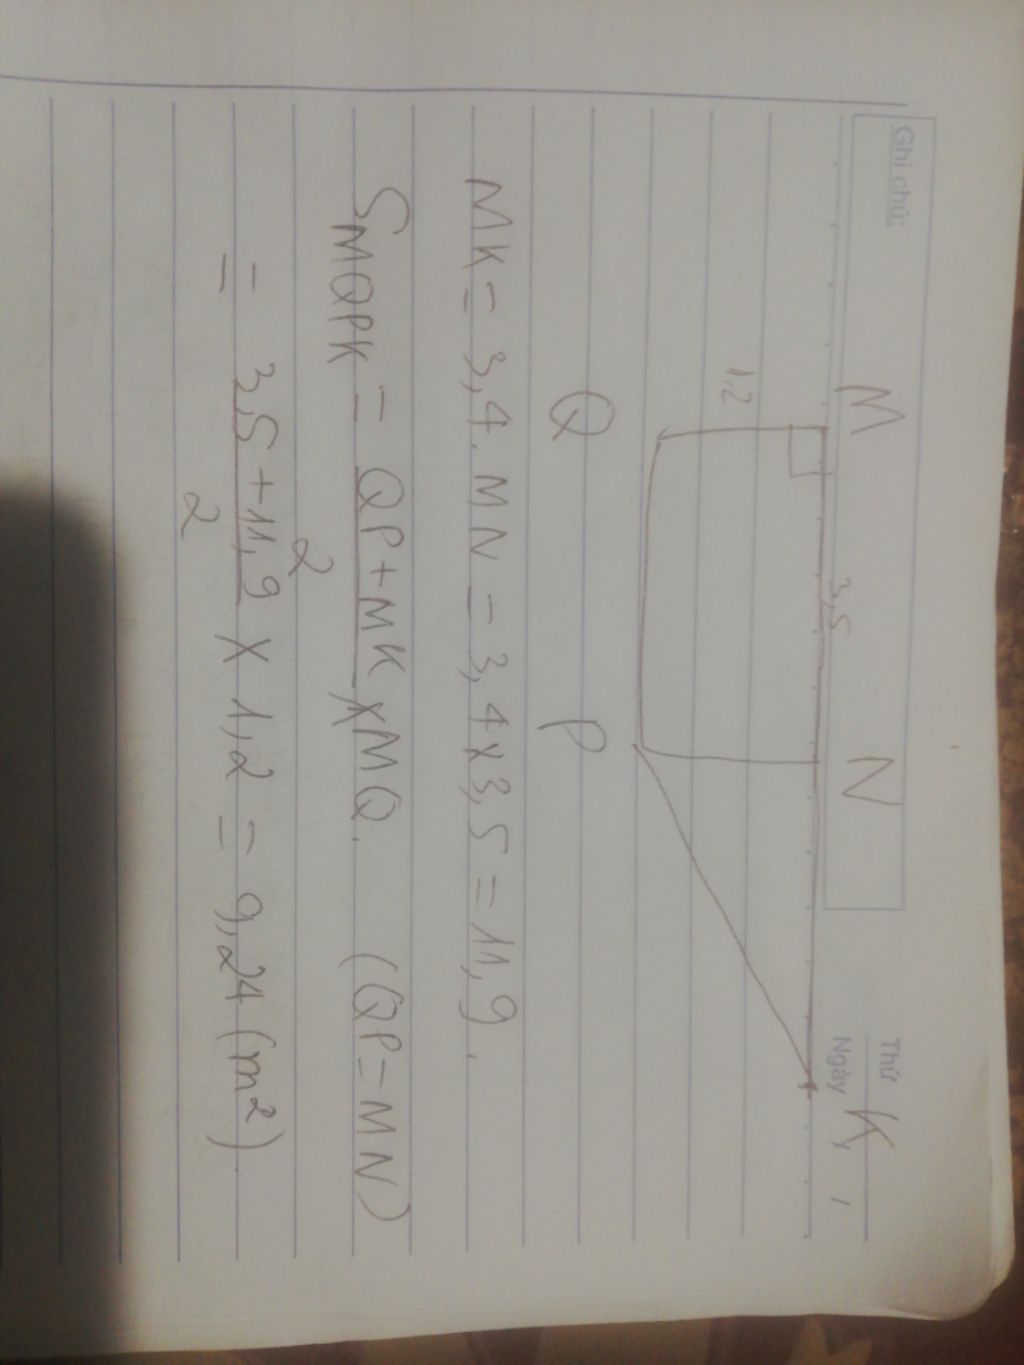 Ghi chú:
Thứ
Ngày
M
3,5
N
K
1,2
Q
P
MK = 3,4. MN = 3,4 x 3,5 = 11,9.
S MQPK = QP + MK / 2 x MQ. (QP = MN)
= 3,5 + 11,9 / 2 x 1,2 = 9,24 (m²)